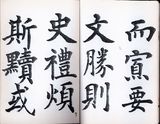 而寡要
文勝則
史禮煩
斯黷或